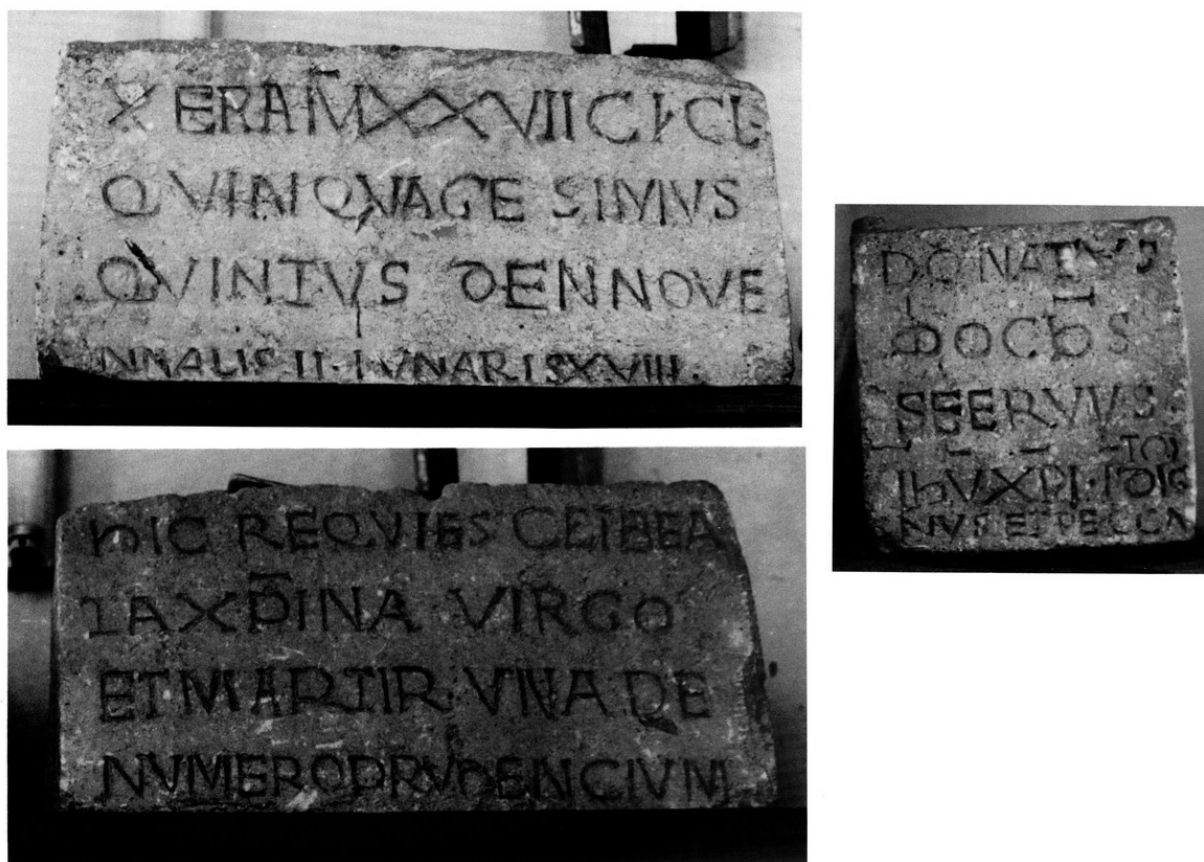 X ERA M XXVII CICL
QVINQVAGESIMVS
QVINTVS DENNOVE
NNALIS II · LVNARIS XVIII ·
hIC REQVIESCEIBEA
TA XPINA VIRGO
ET MARTIR VNA DE
NVMERO PRVDENCIVM
DONATVS
DOCtS
SEERVVS
IhV XPI
NVS ET PECCA